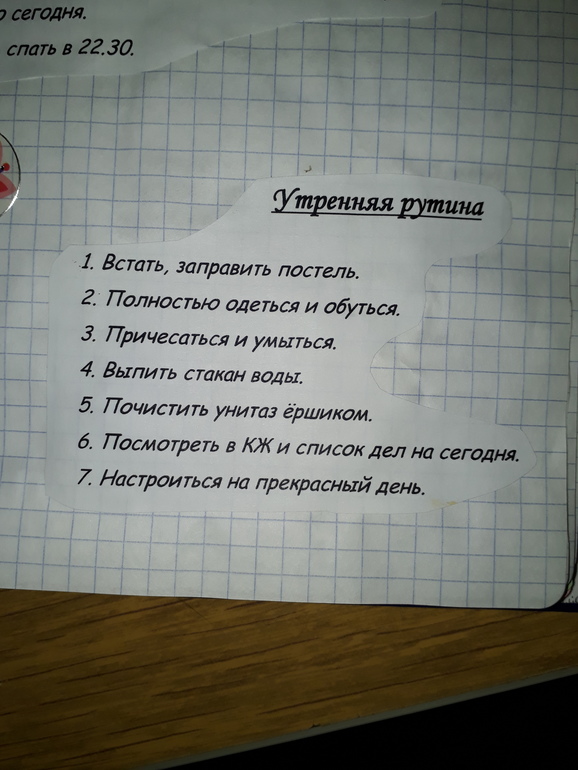 сегодня.
спать в 22.30.
Утренняя рутина
1. Встать, заправить постель.
2. Полностью одеться и обуться.
3. Причесаться и умыться.
4. Выпить стакан воды.
5. Почистить унитаз ёршиком.
6. Посмотреть в КЖ и список дел на сегодня.
7. Настроиться на прекрасный день.